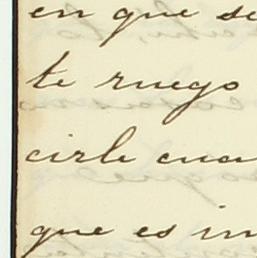 en que se
te ruego
cirle cua
que es in